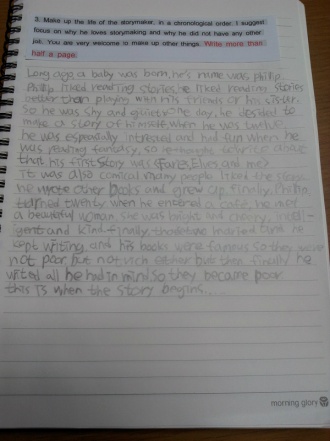 3. Make up the life of the storymaker, in a chronological order. I suggest
focus on why he loves storymaking and why he did not have any other
job. You are very welcome to make up other things. Write more than
half a page.
Long ago a baby was born, he's name was philip.
Philip liked reading stories, he liked reading stories
other than playing with his friends or his sister.
So he was shy and quiet. One day, he decided to
make a story of himself when he was twelve.
he was especially intrested and had fun when he
was reading fantasy, so he
that his first story was Fares, Elves and me?
it was also comical many people liked the
he wrote other books and grew up, finally, Philip
turned twenty when he entered a café, he met
a beautiful woman. she was bright and cheery, intell-
igent and kind. finally, they married and he
kept writing, and his books were famous so they were
not poor but not rich either but then finally he
writed all he had in mind so they became poor.
this is when the story begins......
morning glory